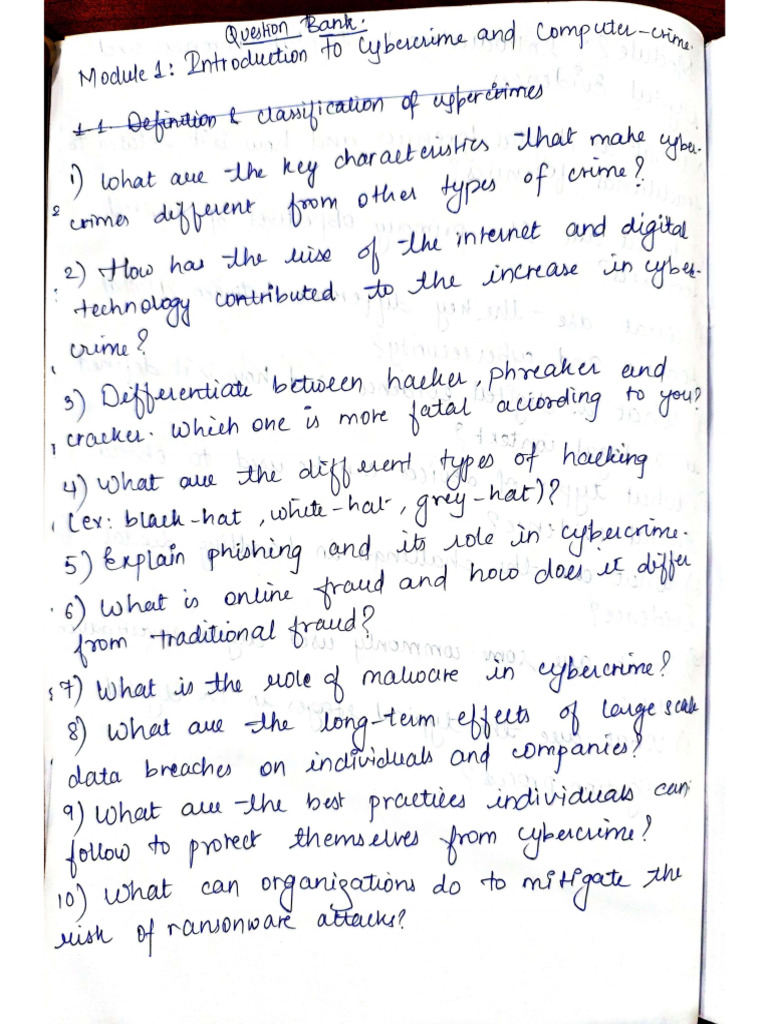 Question Bank:
Module 1: Introduction to Cybercrime and Computer-crime.
1.1. Definition & classification of cybercrimes
1) What are the key characteristics that make cyber-
crimes different from other types of crime?
2) How has the rise of the internet and digital
technology contributed to the increase in cyber-
crime?
3) Differentiate between hacker, phreaker and
cracker. Which one is more fatal according to you?
4) What are the different types of hacking
(ex: black-hat, white-hat, grey-hat)?
5) Explain phishing and its role in cybercrime.
6) What is online fraud and how does it differ
from traditional fraud?
7) What is the role of malware in cybercrime?
8) What are the long-term effects of large scale
data breaches on individuals and companies?
9) What are the best practices individuals can
follow to protect themselves from cybercrime?
10) What can organizations do to mitigate the
risk of ransonware attacks?